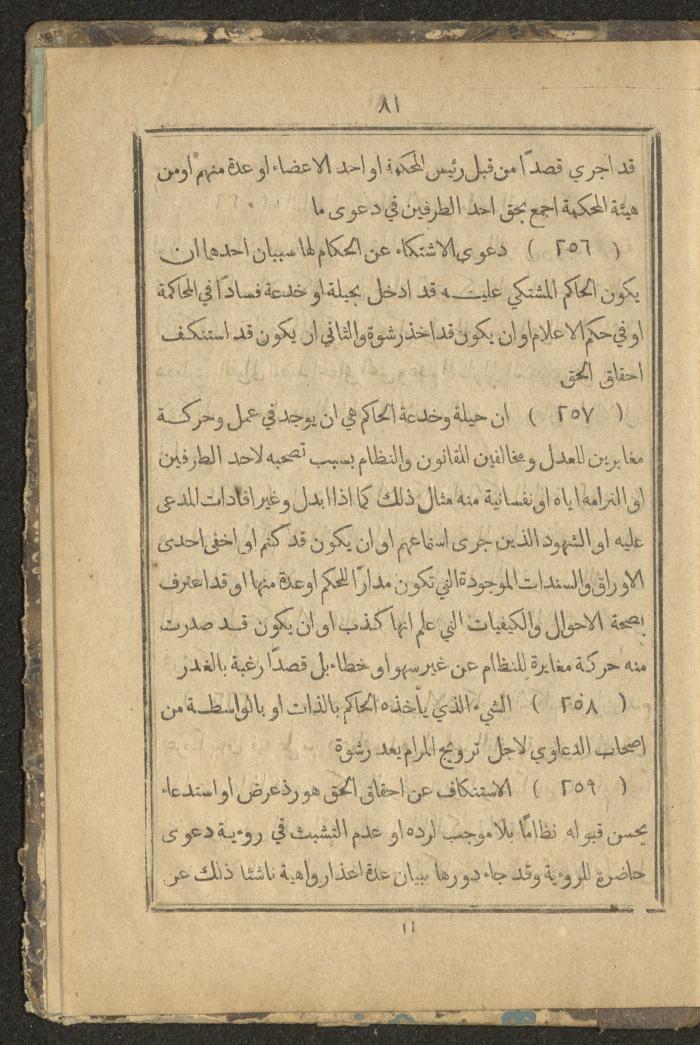 ٨١
قد اجري قصدًا من قبل رئيس المحكمة او احد الاعضاء او عدة منهم اومن
هيئة المحكمة اجمع بحق احد الطرفين في دعوى ما
( ٢٥٦ ) دعوى الاشتكاء عن الحكام لها سببان احدهما ان
يكون الحاكم المشتكي عليه قد ادخل بحيلة او خدعة فسادًا في المحاكمة
او في حكم الاعلام او ان يكون قد اخذ رشوة والثاني ان يكون قد استنكف
احقاق الحق
( ٢٥٧ ) ان حيلة وخدعة الحاكم هي ان يوجد في عمل وحركة
مغايرين للعدل ومخالفين للقانون والنظام بسبب تصحبه لاحد الطرفين
او التزامه اياه او نفسانية منه مثال ذلك كما اذا ابدل وغير افادات المدعى
عليه او الشهود الذين جرى استماعهم او ان يكون قد كتم او اخفى احدى
الاوراق والسندات الموجودة التي تكون مدارًا للحكم او عدة منها او قد اعترف
بصحة الاحوال والكيفيات التي علم انها كذب او ان يكون قد صدرت
منه حركة مغايرة للنظام عن غير سهو او خطاء بل قصدًا رغبة بالغدر
( ٢٥٨ ) الشيء الذي يأخذه الحاكم بالذات او بالواسطة من
اصحاب الدعاوي لاجل ترويج المرام يعد رشوة
( ٢٥٩ ) الاستنكاف عن احقاق الحق هو رد عرض او استدعاء
يحسن قبوله نظامًا بلا موجب لرده او عدم التشبث في روءية دعوى
حاضرة للروءية وقد جاء دورها ببيان عدة اعذار واهية ناشئا ذلك عن
١١